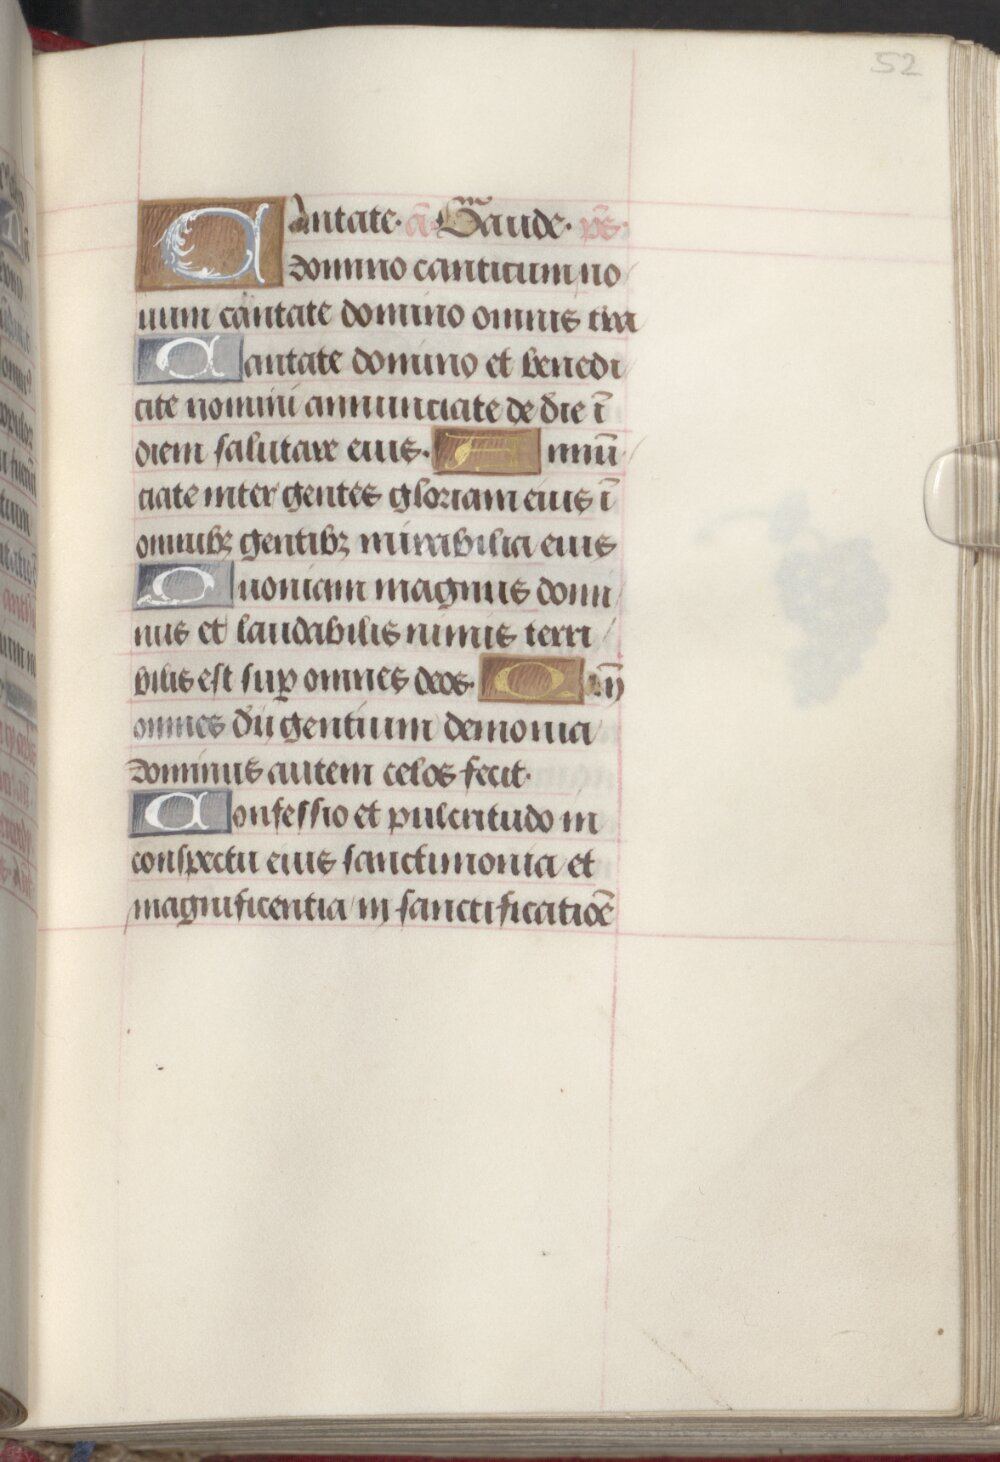 52
Cantate. an̄. Gāude. ps̄.
domino canticum no
uum cantate domino omnis tr̄a
Cantate domino et benedi
cite nomini annunciate de die ī
diem salutare eius. Annū
ciate inter gentes gloriam eius ī
omnibꝫ gentibꝫ mirabilia eius
Quoniam magnus domi
nus et laudabilis nimis terri
bilis est suꝑ omnes deos. Qm̄
omnes dij gentium demonia
dominus autem celos fecit.
Confessio et pulcritudo in
conspectu eius sanctimonia et
magnificentia in sanctificatiōe